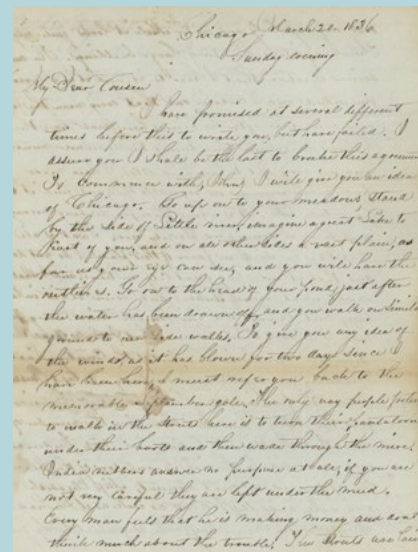 Chicago March 20 1836
Sunday evening
My Dear Cousin
I have promised at several different
times before this to write you, but have failed. I
assure you I shall be the last to brake this agreement
To commence with, I will give you an idea
of Chicago. Go up on to your meadows, stand
by the side of Little river, imagine a great Lake to
of you, and on all other sides a vast plain, as
far as your eye can see, and you will have the
outlines. Go on to the head of your pond, just after
the water has been drawn off, and you walk on similar
ground to our side walks. To give you any idea of
the winds, as it has blown for two days since I
have been here, I must refer you back to the
memorable September gale. The only way people
to walk in the streets here is to turn their pantaloons
under their boots and then wade through the mire,
Indian rubbers answer no purpose at all, if you are
not very careful they are left under the mud.
Every man feels that he is making money and dont
think much about the trouble. The streets are